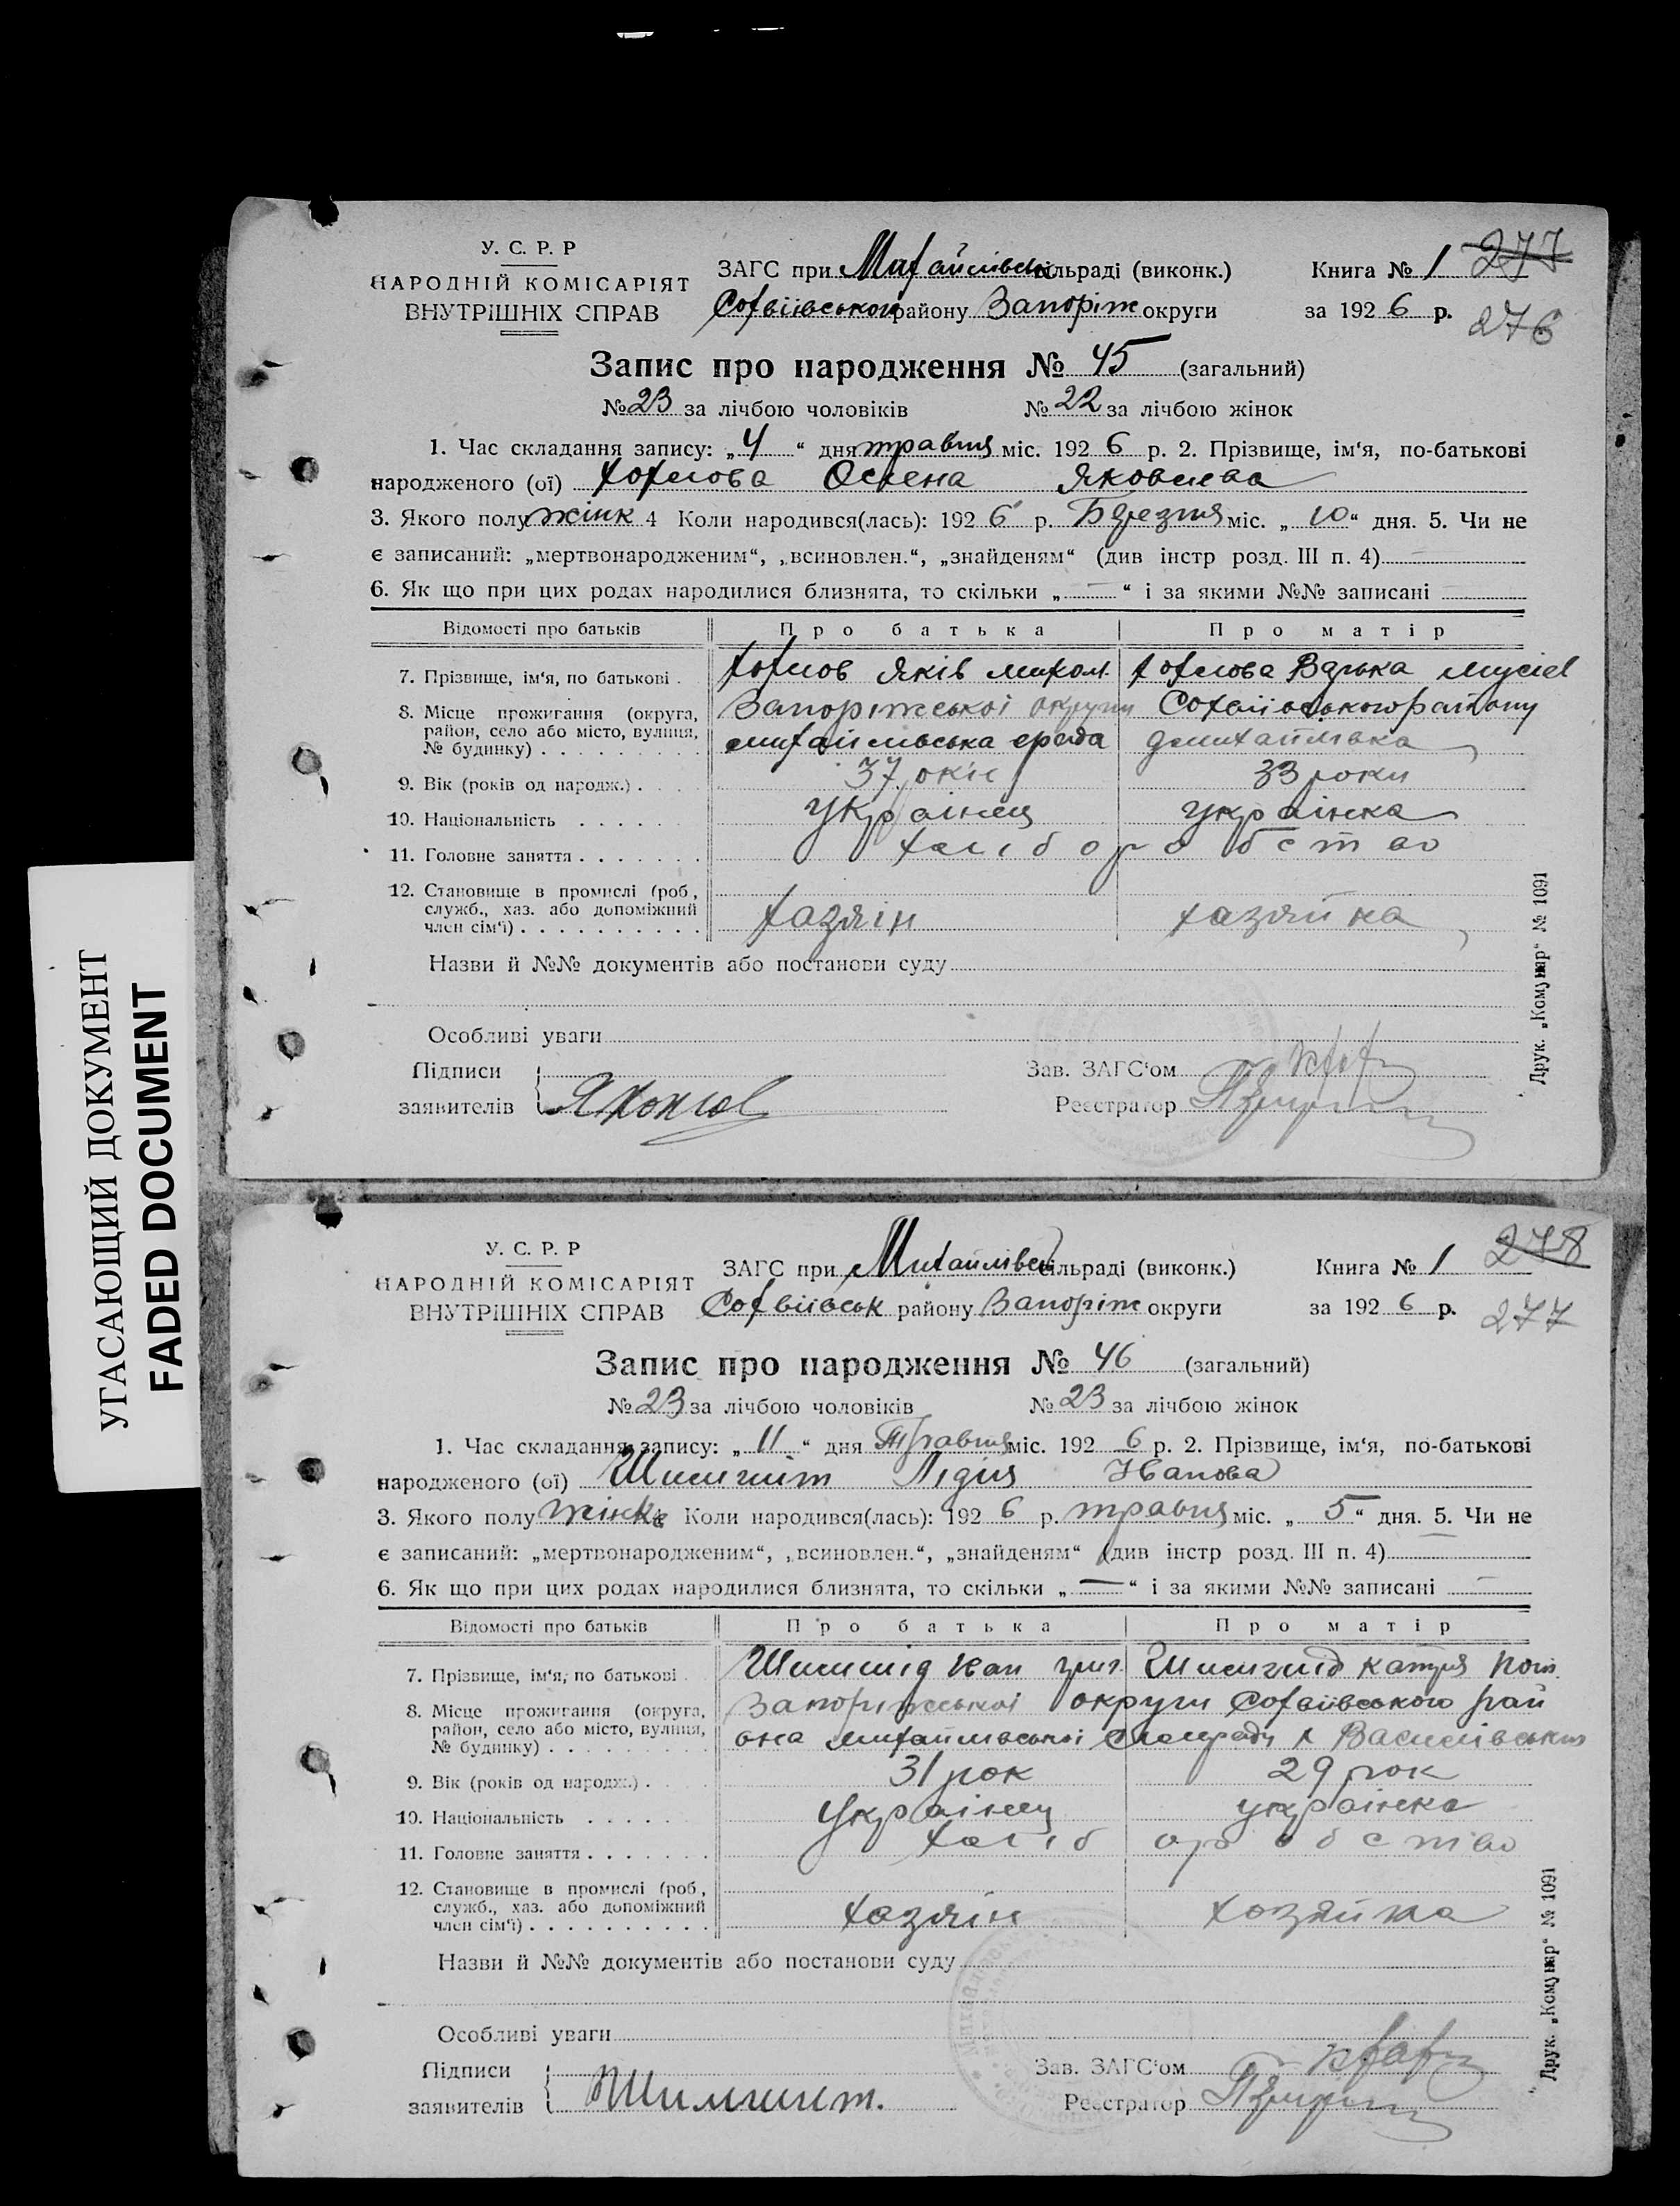 УГАСАЮЩИЙ ДОКУМЕНТ
FADED DOCUMENT
У. С. Р. Р
НАРОДНІЙ КОМІСАРІЯТ
ВНУТРІШНІХ СПРАВ
ЗАГС при Михайлівськ сільраді (виконк.)
Софвіївського району Запоріж округи
Книга № 1 277
за 192 6 р. 276
Запис про народження № 45 (загальний)
№ 23 за лічбою чоловіків № 22 за лічбою жінок
1. Час складання запису: „ 4 “ дня травня міс. 192 6 р. 2. Прізвище, ім‘я, по-батькові
народженого (ої) Хохлова Яковлева
3. Якого полу жінк 4 Коли народився(лась): 192 6 р. Березня міс. „ 10 “ дня. 5. Чи не
є записаний: „мертвонародженим“, „всиновлен.“, „знайденям“ (див інстр розд. III п. 4) —
6. Як що при цих родах народилися близнята, то скільки „ — “ і за якими №№ записані —
Відомості про батьків Про батька Про матір
7. Прізвище, ім‘я, по батькові . Хохлов Яків Хохлова Варька мусієв
8. Місце прожигання (округа, район, село або місто, вулиця, № будинку) . Запоріжської округи Софвіївського району
михайлівська срада михайлівка
9. Вік (років од народж.) . 37 років 33 роки
10. Національність . українец українка
11. Головне заняття . хліборобство
12. Становище в промислі (роб, служб., хаз. або допоміжний член сім‘ї) . хазяін хазяйка
Назви й №№ документів або постанови суду
Особливі уваги
Підписи
заявителів
Зав. ЗАГС‘ом
Реєстратор
Друк. „Комунар“ № 1091
У. С. Р. Р
НАРОДНІЙ КОМІСАРІЯТ
ВНУТРІШНІХ СПРАВ
ЗАГС при Михайлівськ сільраді (виконк.)
Софвіівськ району Запоріж округи
Книга № 1 278
за 192 6 р. 277
Запис про народження № 46 (загальний)
№ 23 за лічбою чоловіків № 23 за лічбою жінок
1. Час складання запису: „ 11 “ дня Травня міс. 192 6 р. 2. Прізвище, ім‘я, по-батькові
народженого (ої) Лідія Іванова
3. Якого полу жінк Коли народився(лась): 192 6 р. травня міс. „ 5 “ дня. 5. Чи не
є записаний: „мертвонародженим“, „всиновлен.“, „знайденям“ (див інстр розд. III п. 4)
6. Як що при цих родах народилися близнята, то скільки „ — “ і за якими №№ записані —
Відомості про батьків Про батька Про матір
7. Прізвище, ім‘я, по батькові . григ. катря
8. Місце прожигання (округа, район, село або місто, вулиця, № будинку) . Запоріжської округи Софвіївського рай
она михайлівської Василівський
9. Вік (років од народж.) . 31 рок 29 рок
10. Національність . Українец українка
11. Головне заняття . хліборобство
12. Становище в промислі (роб, служб., хаз. або допоміжний член сім‘ї) . хазяін хозяйка
Назви й №№ документів або постанови суду
Особливі уваги
Підписи
заявителів
Зав. ЗАГС‘ом
Реєстратор
Друк. „Комунар“ № 1091